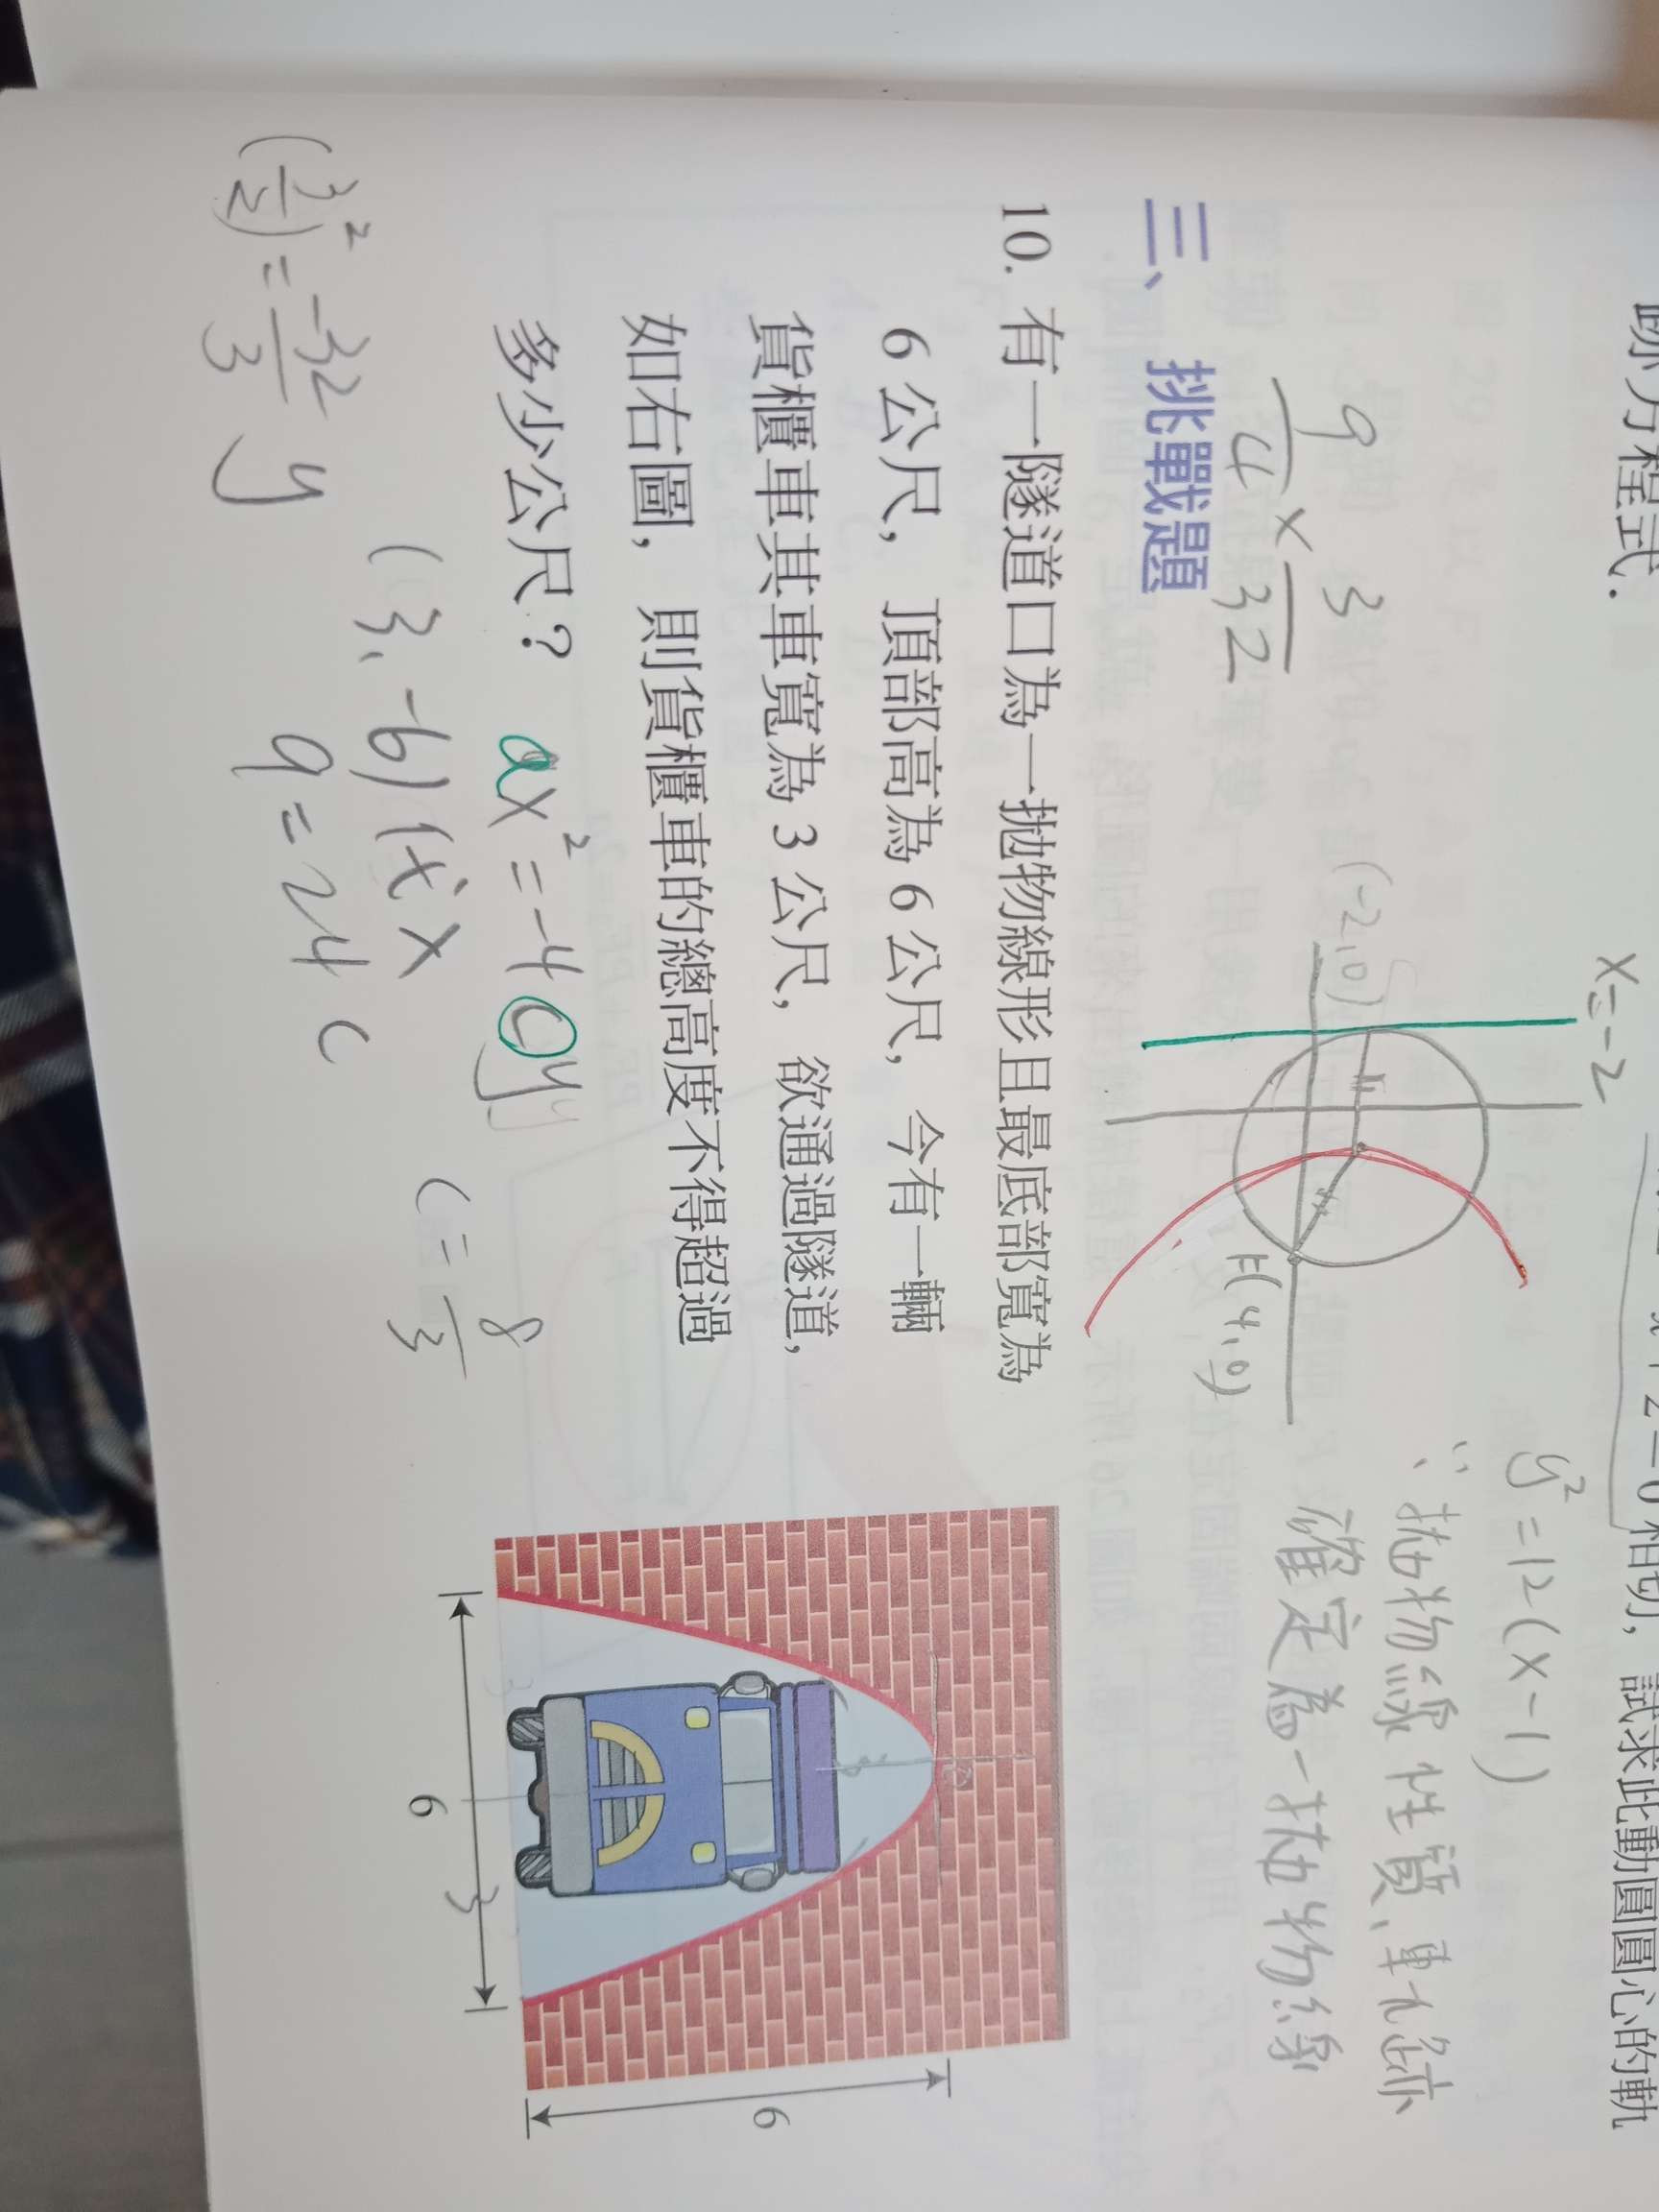 跡方程式.
x=-2
相切，試求此動圓圓心的軌
y²=12(x-1)
(-2,0)
F(4,0)
∵拋物線性質、軌跡
確定為一拋物線
9/4 × 3/32
三、挑戰題
10. 有一隧道口為一拋物線形且最底部寬為
6 公尺，頂部高為 6 公尺，今有一輛
貨櫃車其車寬為 3 公尺，欲通過隧道，
如右圖，則貨櫃車的總高度不得超過
多少公尺？
ax²=-4cy
(3,-6)代x
9=24c
c=8/3
(3/2)²=-32/3 y
6
3
6